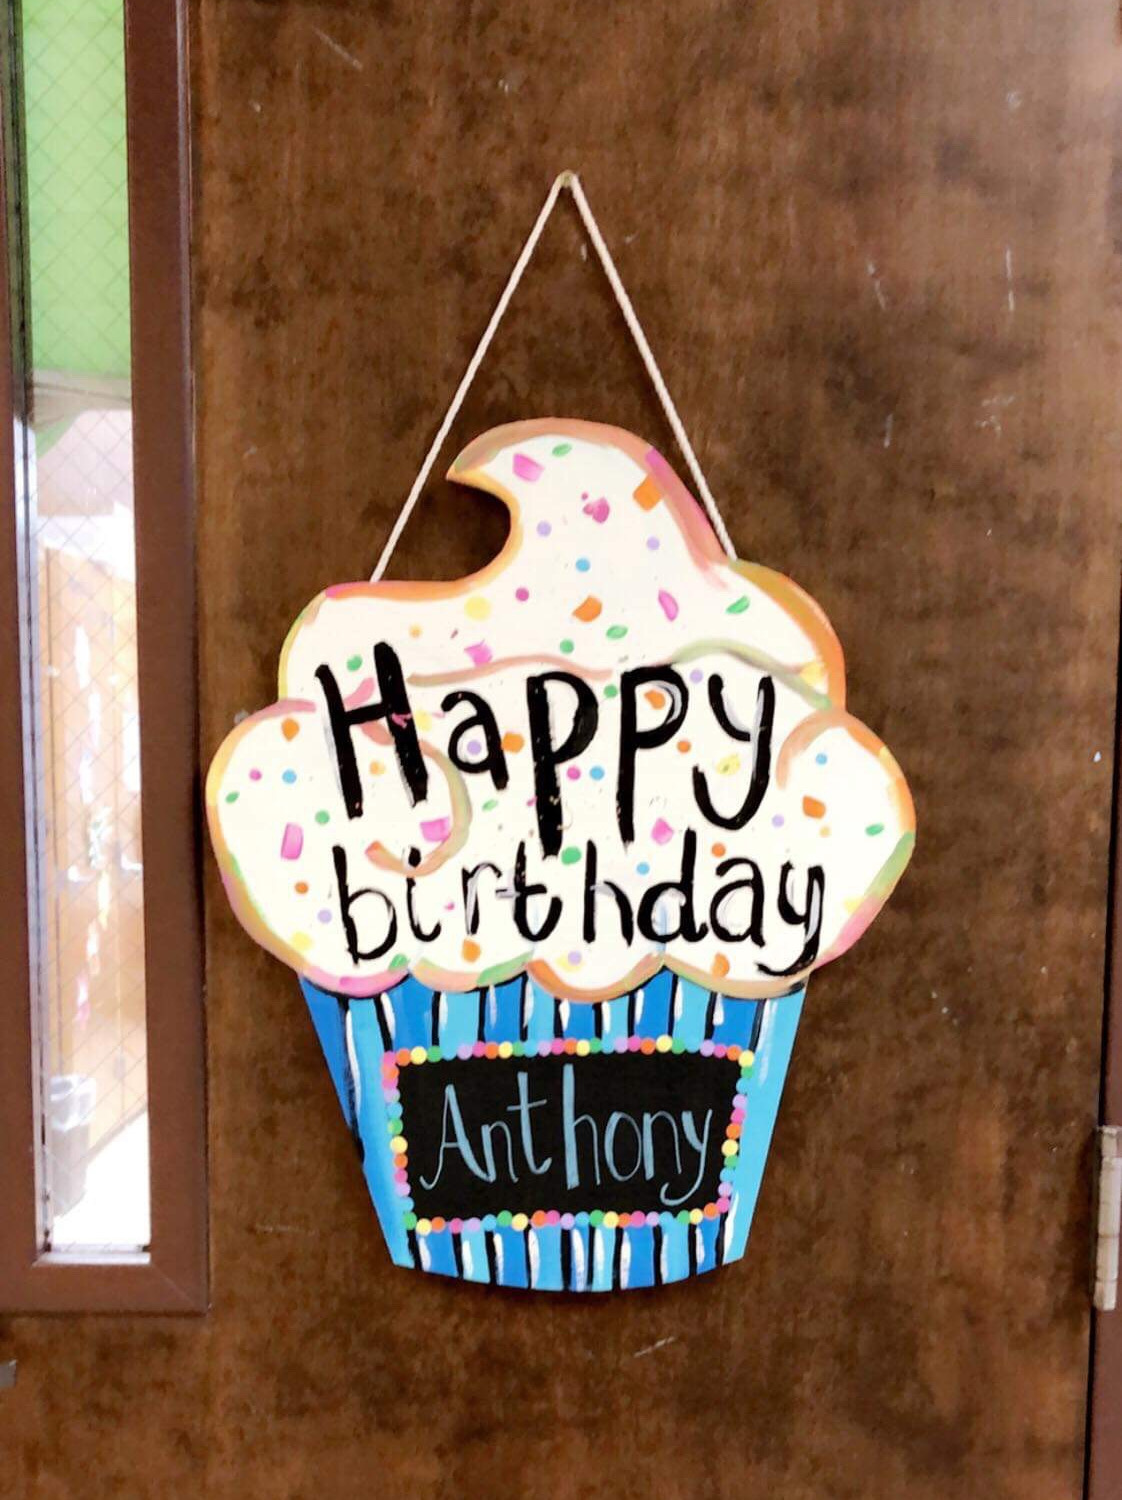 Happy
birthday
Anthony